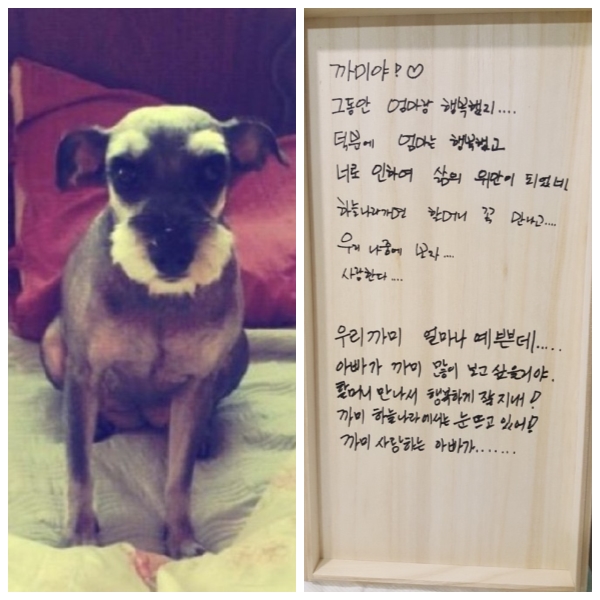 까미야? ♡
그동안 엄마랑 행복했지....
덕분에 엄마는 행복했고
너로 인하여 삶의 위안이 되었어
하늘나라가면 할머니 꼭 만나고....
우리 나중에 보자....
사랑한다....
우리 까미 얼마나 예쁜데.....
아빠가 까미 많이 보고 싶을거야.
할머니 만나서 행복하게 잘 지내!
까미 하늘나라에서는 눈뜨고 있어!
까미 사랑하는 아빠가.......